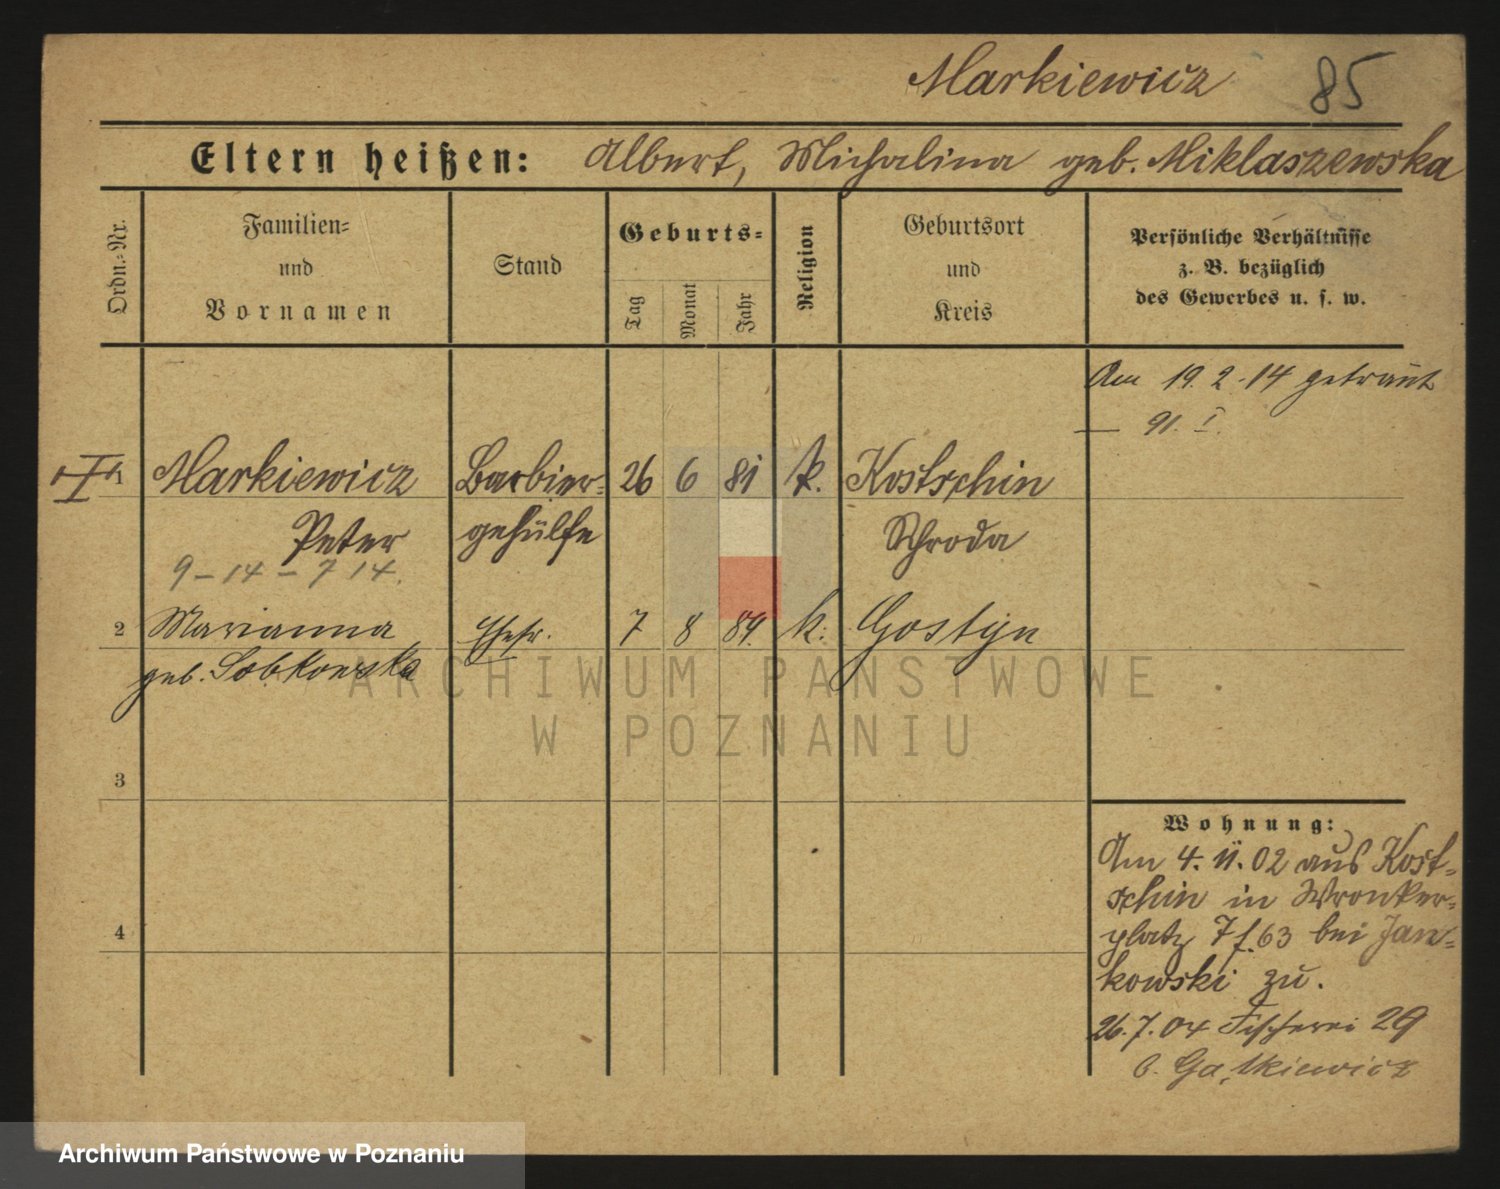 Markiewicz 85
Eltern heißen: Albert, Michalina geb. Miklaszewska
Ordn.-Nr.
Familien-
und
Vornamen
Stand
Geburts-
Tag
Monat
Jahr
Religion
Geburtsort
und
Kreis
Persönliche Verhältnisse
z. B. bezüglich
des Gewerbes u. s. w.
Am 19. 2. 14 getraut
91. I.
1 Markiewicz Barbier- 26 6 81 k. Kostschin
Peter gehülfe Schroda
9 – 14 – 7 14.
2 Marianna Ehefr. 7 8 84. k. Gostyn
geb. Sobkowska
3
4
Wohnung:
Am 4. 11. 02 aus Kost-
schin in Wronker-
platz 7 f. 63 bei Jan-
kowski zu.
26. 7. 04 Fischerei 29
ARCHIWUM PAŃSTWOWE
W POZNANIU
Archiwum Państwowe w Poznaniu